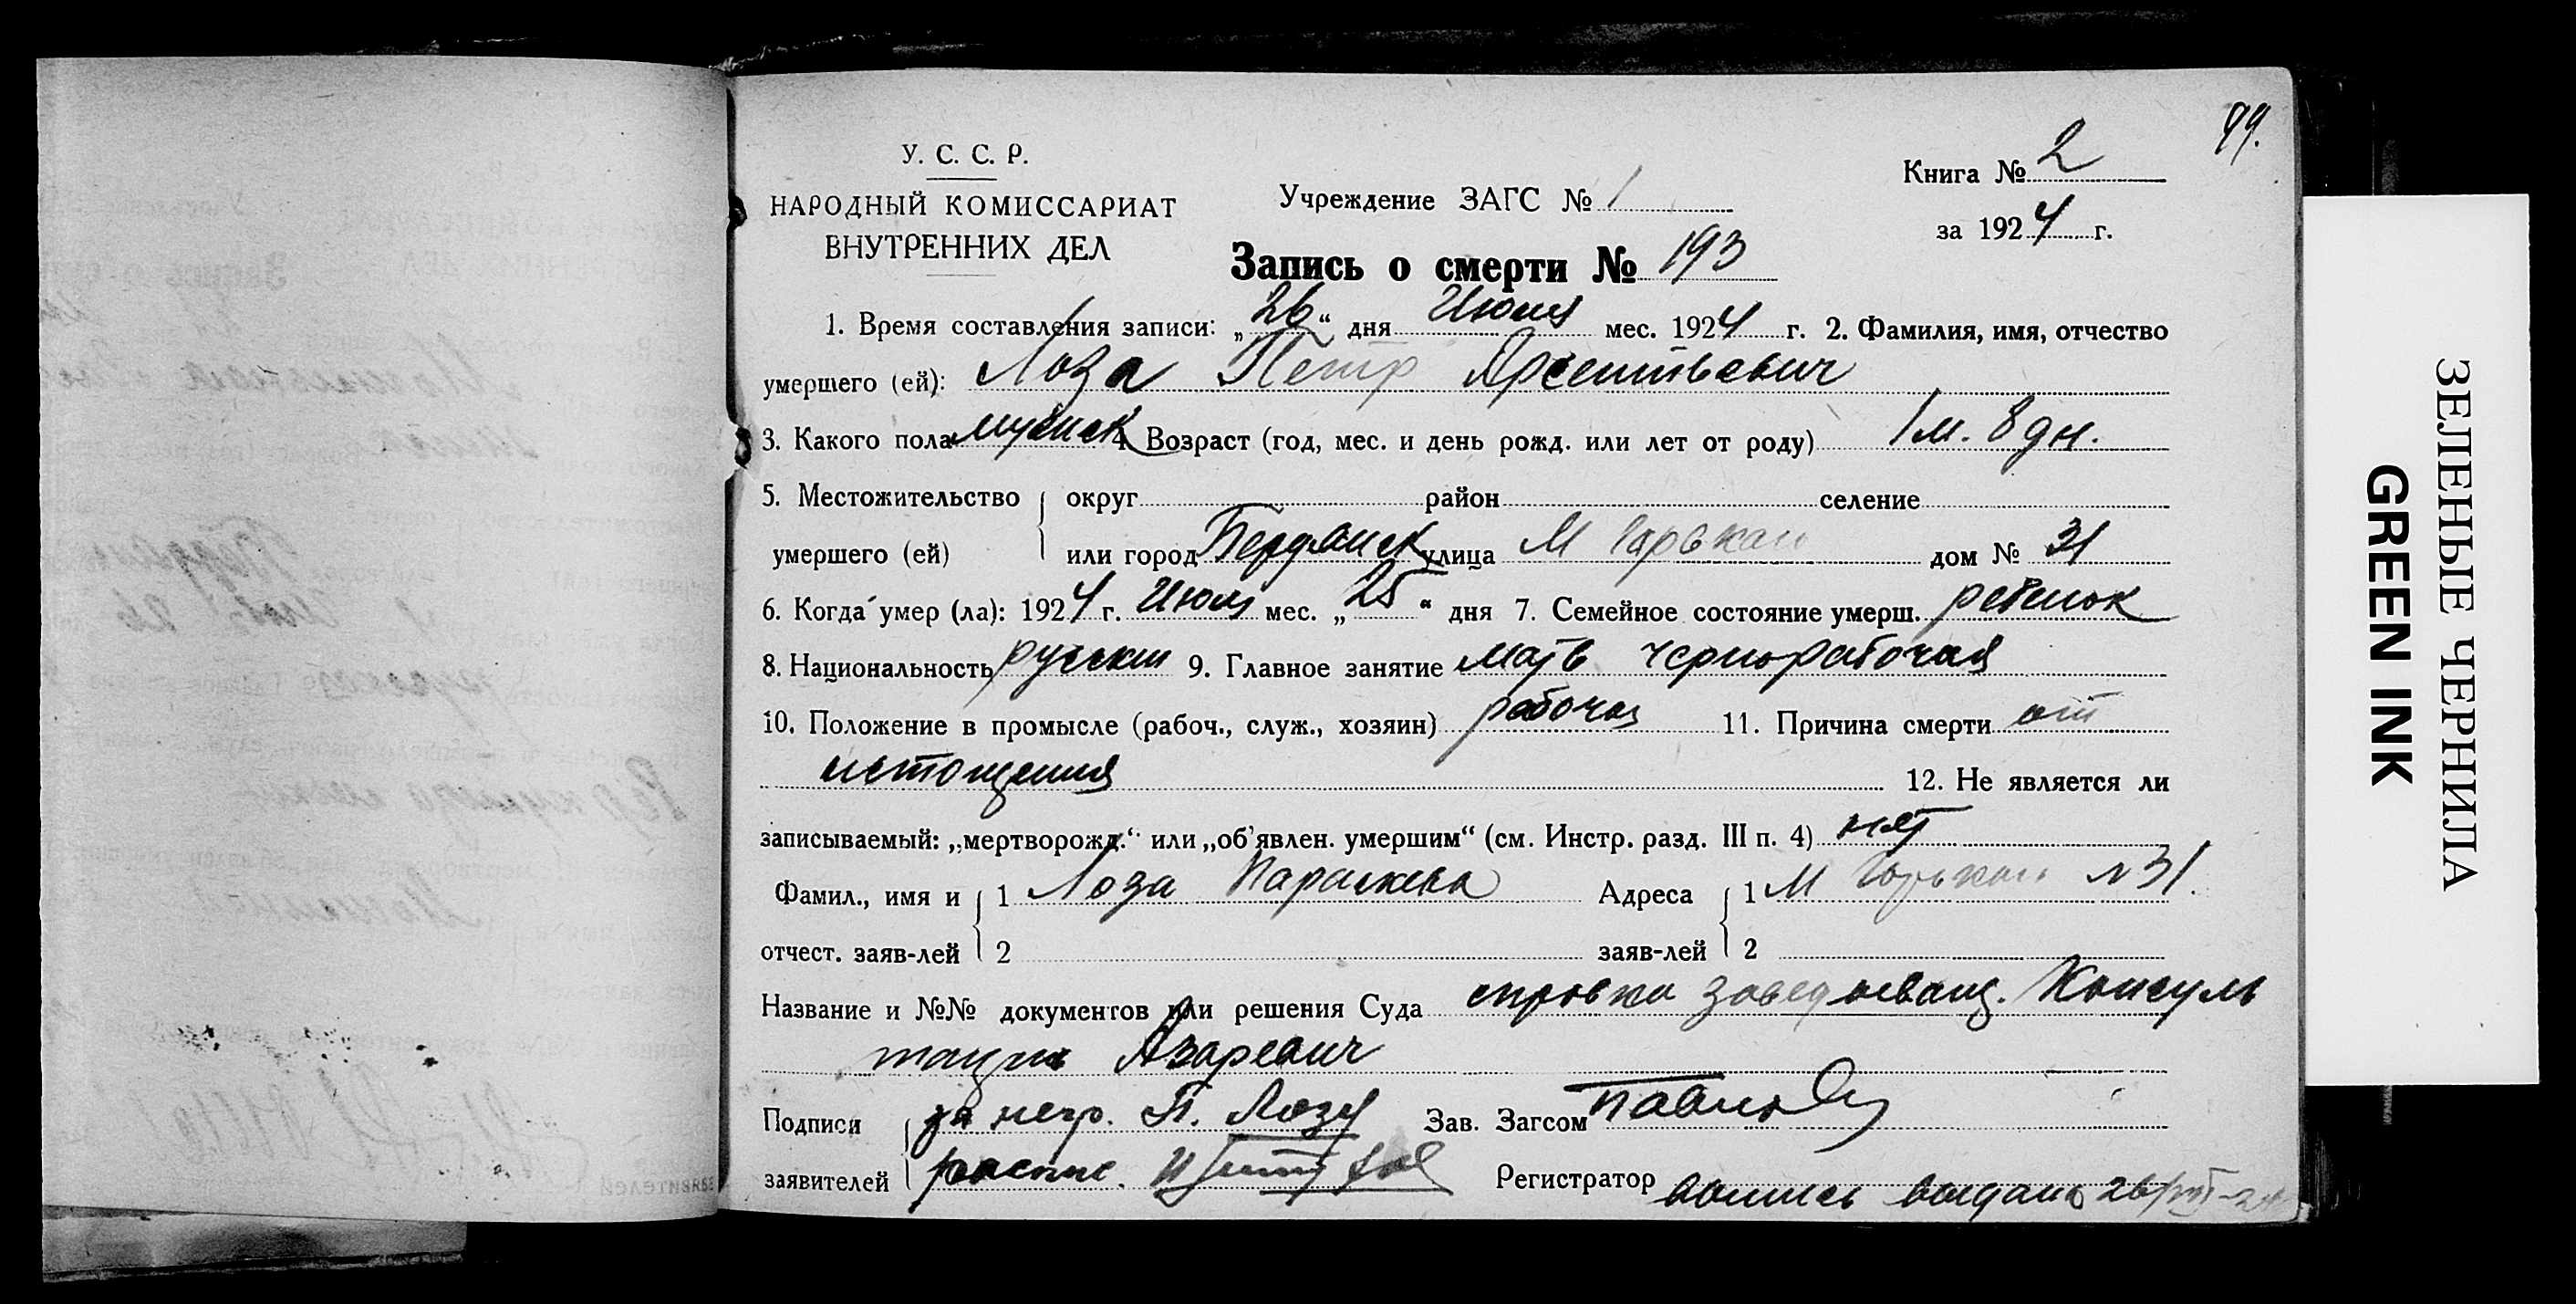 99.
У. С. С. Р.
НАРОДНЫЙ КОМИССАРИАТ
ВНУТРЕННИХ ДЕЛ
Учреждение ЗАГС № 1
Книга № 2
за 1924 г.
Запись о смерти № 193
1. Время составления записи: „26“ дня Июля мес. 1924 г. 2. Фамилия, имя, отчество
умершего (ей): Лоза Петр Арсентьевич
3. Какого пола мужск 4. Возраст (год, мес. и день рожд. или лет от роду) 1 м. 8 дн.
5. Местожительство округ район селение
умершего (ей) или город Бердянск улица М Горькая дом № 31
6. Когда умер (ла): 1924 г. Июля мес. „25“ дня 7. Семейное состояние умерш. ребенок
8. Национальность русский 9. Главное занятие мать чернорабочая
10. Положение в промысле (рабоч., служ., хозяин) рабочая 11. Причина смерти от
истощения 12. Не является ли
записываемый: „мертворожд.“ или „об'явлен. умершим“ (см. Инстр. разд. III п. 4) нет
Фамил., имя и 1 Лоза Параскева Адреса 1 М Горькая № 31.
отчест. заяв-лей 2 заяв-лей 2
Название и №№ документов или решения Суда справка заведывающ. Консуль
тации Азаревич
Подписи за негр. П. Лозу Зав. Загсом
заявителей распис. Регистратор выпись выдана 26/VII-24
ЗЕЛЕНЫЕ ЧЕРНИЛА
GREEN INK